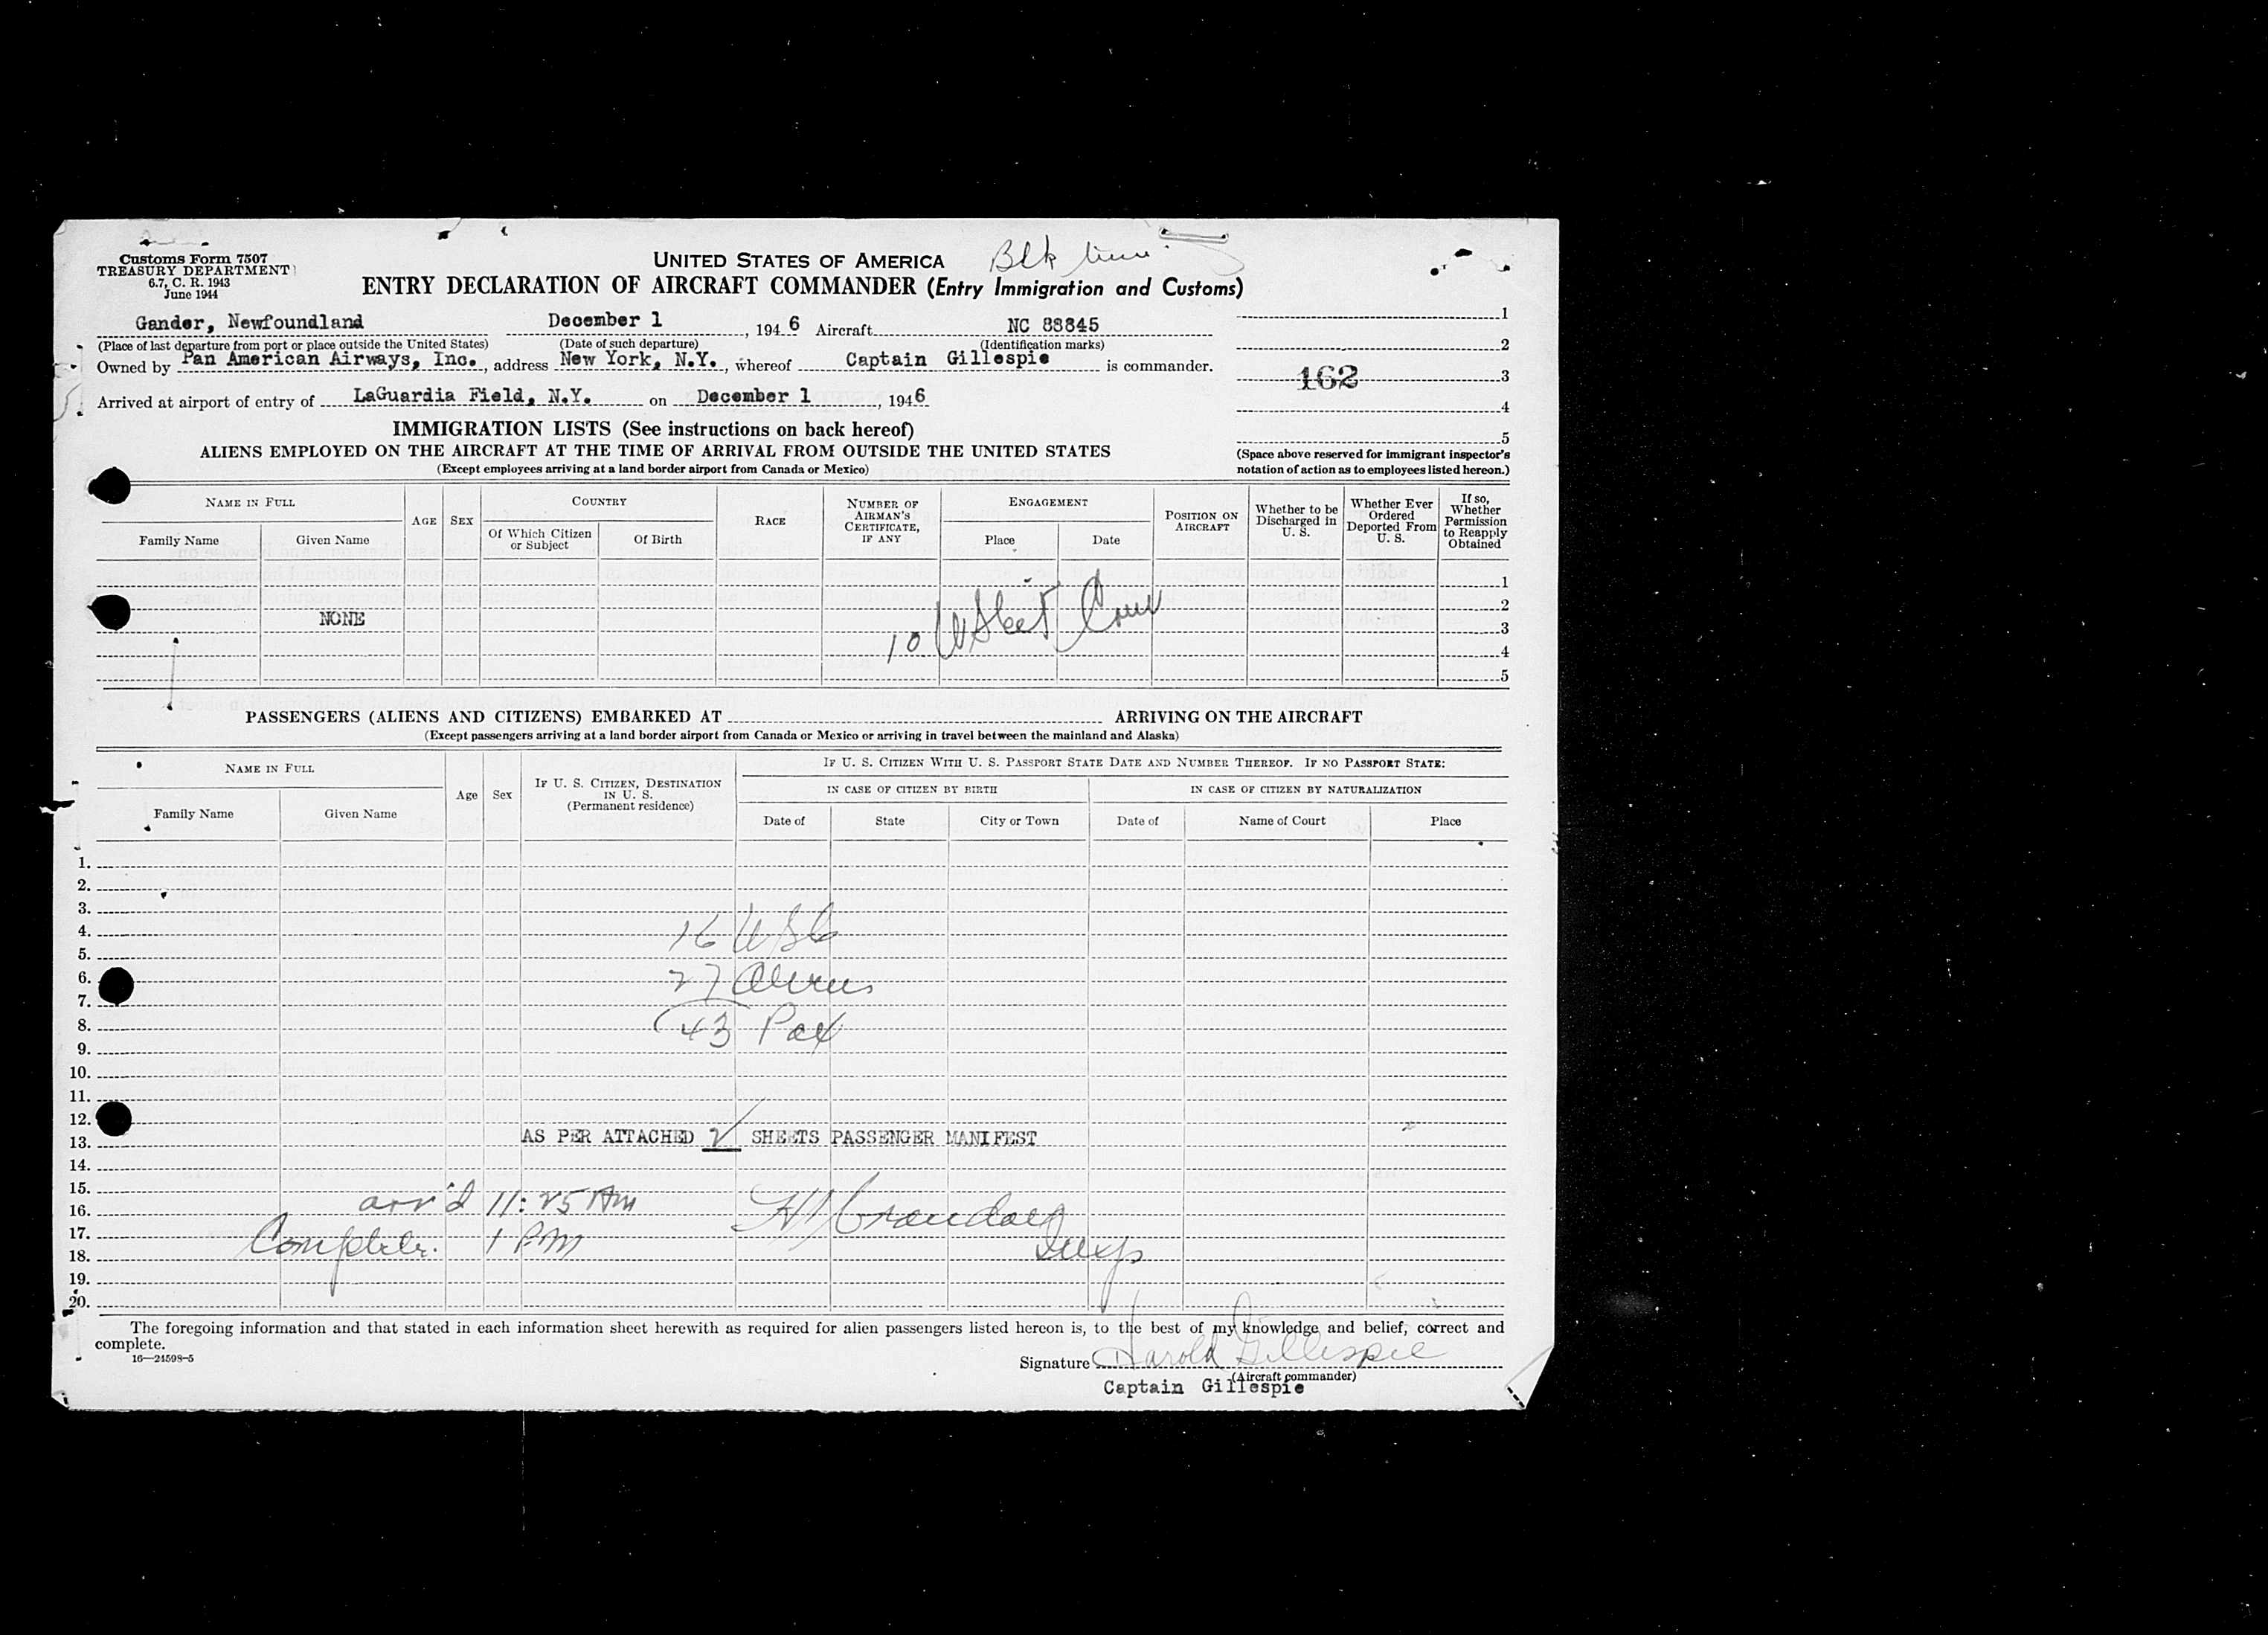 Customs Form 7507
TREASURY DEPARTMENT
6.7, C. R. 1943
June 1944
UNITED STATES OF AMERICA
Blk
ENTRY DECLARATION OF AIRCRAFT COMMANDER (Entry Immigration and Customs)
Gander, Newfoundland December 1, 1946 Aircraft NC 88845
(Place of last departure from port or place outside the United States) (Date of such departure) (Identification marks)
Owned by Pan American Airways, Inc., address New York, N.Y., whereof Captain Gillespie is commander.
Arrived at airport of entry of LaGuardia Field, N.Y. on December 1, 1946
1
2
162 3
4
5
(Space above reserved for immigrant inspector's
notation of action as to employees listed hereon.)
IMMIGRATION LISTS (See instructions on back hereof)
ALIENS EMPLOYED ON THE AIRCRAFT AT THE TIME OF ARRIVAL FROM OUTSIDE THE UNITED STATES
(Except employees arriving at a land border airport from Canada or Mexico)
NAME IN FULL
Family Name Given Name
AGE
SEX
COUNTRY
Of Which Citizen or Subject
Of Birth
RACE
NUMBER OF AIRMAN'S CERTIFICATE, IF ANY
ENGAGEMENT
Place Date
POSITION ON AIRCRAFT
Whether to be Discharged in U. S.
Whether Ever Ordered Deported From U. S.
If so, Whether Permission to Reapply Obtained
1
2
NONE
3
10 Crew
4
5
PASSENGERS (ALIENS AND CITIZENS) EMBARKED AT ARRIVING ON THE AIRCRAFT
(Except passengers arriving at a land border airport from Canada or Mexico or arriving in travel between the mainland and Alaska)
NAME IN FULL
Family Name Given Name
Age
Sex
IF U. S. CITIZEN, DESTINATION IN U. S.
(Permanent residence)
IF U. S. CITIZEN WITH U. S. PASSPORT STATE DATE AND NUMBER THEREOF. IF NO PASSPORT STATE:
IN CASE OF CITIZEN BY BIRTH
Date of State City or Town
IN CASE OF CITIZEN BY NATURALIZATION
Date of Name of Court Place
1.
2.
3.
4. 16 USC
5.
6. 27 Aliens
7.
8. 43 Pax
9.
10.
11.
12.
13. AS PER ATTACHED 2 SHEETS PASSENGER MANIFEST
14.
15.
16. arr'd 11:25 AM Crandall
17.
18. Complete. 1 PM Insp
19.
20.
The foregoing information and that stated in each information sheet herewith as required for alien passengers listed hereon is, to the best of my knowledge and belief, correct and
complete.
16—24598-5
Signature Harold Gillespie
(Aircraft commander)
Captain Gillespie